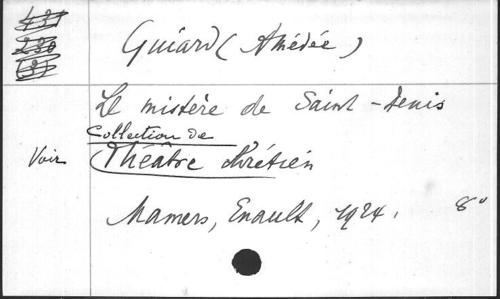 Guiard (Amédée)
Le mistère de Saint-Denis
Collection de
Voir Théâtre chrétien
Mamers, Enault, 1924. 8°